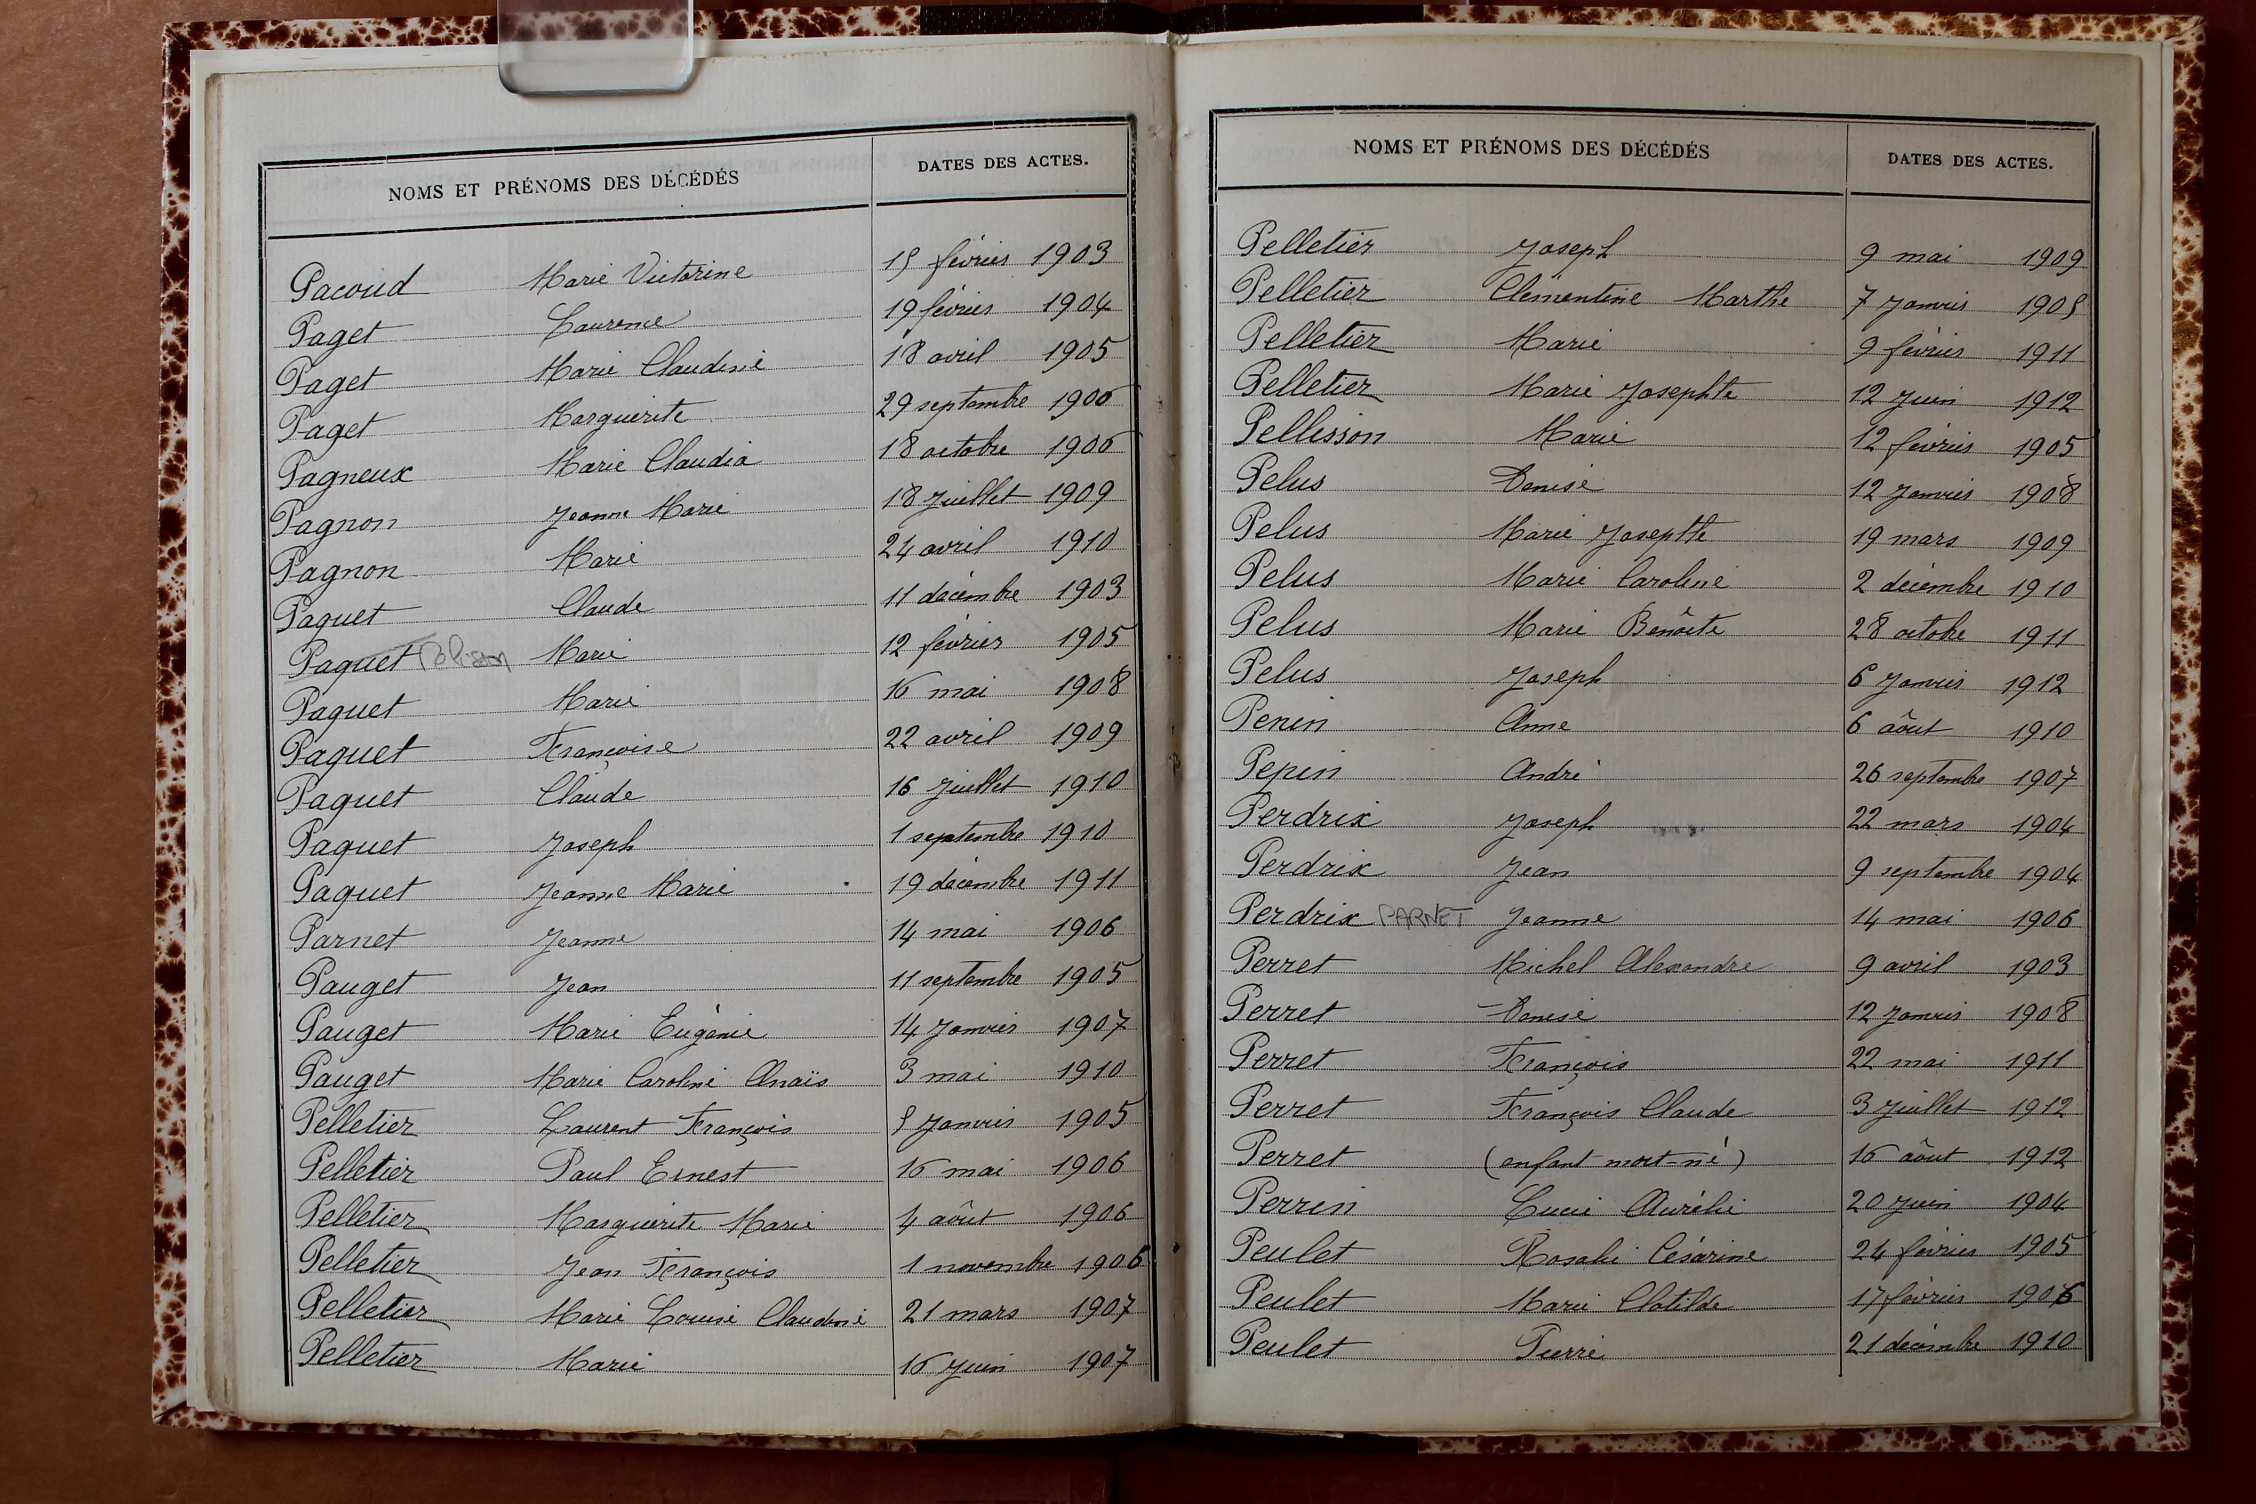 NOMS ET PRÉNOMS DES DÉCÉDÉS DATES DES ACTES.
Pacoud Marie Victorine 15 février 1903
Paget Laurence 19 février 1904
Paget Marie Claudine 18 avril 1905
Paget Marguerite 29 septembre 1906
Pagneux Marie Claudia 18 octobre 1906
Pagnon Jeanne Marie 18 juillet 1909
Pagnon Marie 24 avril 1910
Paquet Claude 11 décembre 1903
Paquet Marie 12 février 1905
Paquet Marie 16 mai 1908
Paquet Françoise 22 avril 1909
Paquet Claude 16 juillet 1910
Paquet Joseph 1 septembre 1910
Paquet Jeanne Marie 19 décembre 1911
Parnet Jeanne 14 mai 1906
Pauget Jean 11 septembre 1905
Pauget Marie Eugénie 14 janvier 1907
Pauget Marie Caroline Anaïs 3 mai 1910
Pelletier Laurent François 5 janvier 1905
Pelletier Paul Ernest 16 mai 1906
Pelletier Marguerite Marie 4 aôut 1906
Pelletier Jean François 1 novembre 1906
Pelletier Marie Louise Claudine 21 mars 1907
Pelletier Marie 16 juin 1907
NOMS ET PRÉNOMS DES DÉCÉDÉS DATES DES ACTES.
Pelletier Joseph 9 mai 1909
Pelletier Clémentine Marthe 7 janvier 1905
Pelletier Marie 9 février 1911
Pelletier Marie Josephte 12 juin 1912
Pellisson Marie 12 février 1905
Pelus Denise 12 janvier 1908
Pelus Marie Josephte 19 mars 1909
Pelus Marie Caroline 2 décembre 1910
Pelus Marie Benôite 28 octobre 1911
Pelus Joseph 6 janvier 1912
Penin Anne 6 aôut 1910
Pepin André 26 septembre 1907
Perdrix Joseph 22 mars 1904
Perdrix Jean 9 septembre 1904
Perdrix PARNET Jeanne 14 mai 1906
Perret Michel Alexandre 9 avril 1903
Perret Denise 12 janvier 1908
Perret François 22 mai 1911
Perret François Claude 3 juillet 1912
Perret (enfant mort-né) 16 aôut 1912
Perrin Lucie Aurélie 20 juin 1904
Peulet Rosalie Césarine 24 février 1905
Peulet Marie Clotilde 17 février 1906
Peulet Pierre 21 décembre 1910